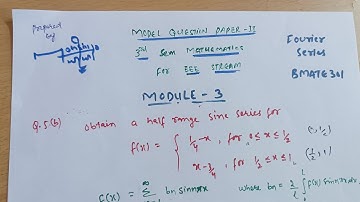 Prepared
by
MODEL QUESTION PAPER-II
3rd sem MATHEMATICS
For EEE STREAM
Fourier
Series
BMATE301
MODULE - 3
Q.5(b) obtain a half range sine series for
f(x) = { 1/4 - x, for 0 ≤ x ≤ 1/2 (0, 1/2)
x - 3/4, for 1/2 ≤ x ≤ 1 (1/2, 1)
f(x) = ∞ Σ bn sin nπx where bn = 2/l ∫ f(x) sin nπx dx